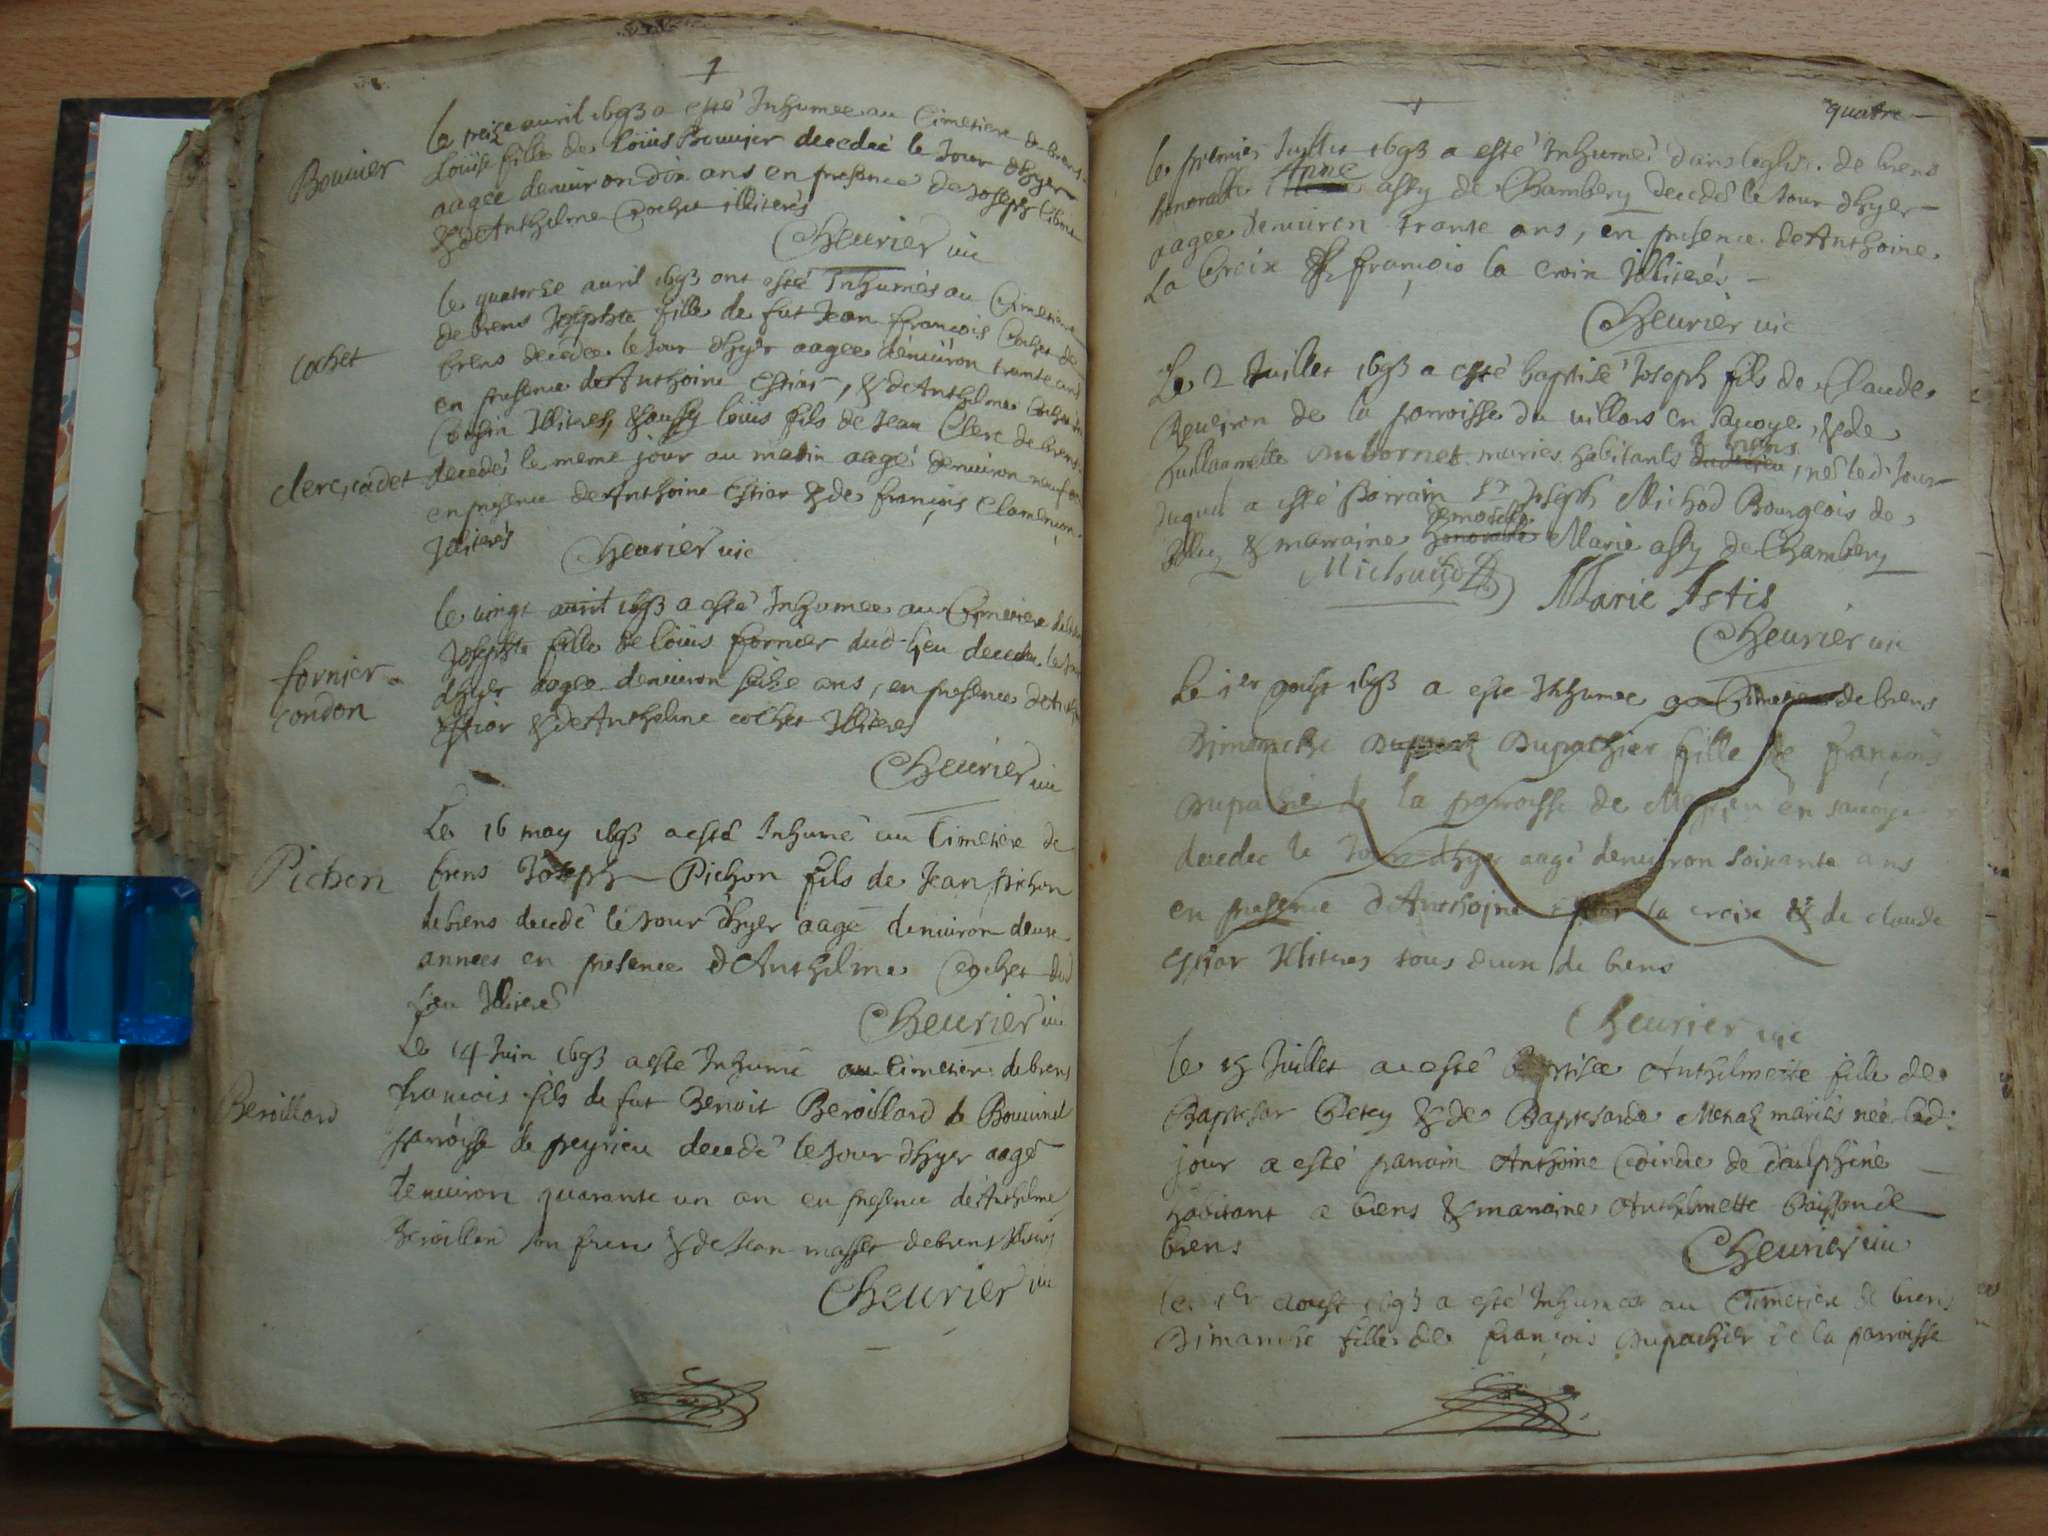 Bouuier
le treize auril 1693 a esté Inhumee au Cimetiere de brens
Loüise fille de Loüis Bouuier decedeé le Jour d'hyer
aageé denuiron dix ans en presence de Joseph
& de Anthelme Cochet illiterés
Cheurier uic
cochet
le quatorse auril 1693 ont esté Inhumés au Cimetiere
de brens Josephte fille de fut Jean françois Cochet de
brens decedee le Jour d'hyer aagee denuiron trante ans
en presence de Anthoine Estior, & de Anthelme Cochet
Cousin Illiteres, & aussy loüis fils de Jean Clerc de brens
clerc, cadet
decedé le meme jour au matin aagé denuiron neuf ans
en presence de Anthoine Estior & de françois Clamençon
Jlliterés
Cheurier uic
le uingt auril 1693 a esté Inhumee au Cimetiere
fornier condon
Josephte fille de loüis fornier dud lieu decedee le Jour
d'hyer aagee denuiron seize ans, en presence de
Estior & de Anthelme cochet Illiteres
Cheurier uic
Pichon
Le 16 may 1693 a esté Inhumé au Cimetiere de
brens Joseph Pichon fils de Jean pichon
de brens decedé le Jour d'hyer aagé denuiron deux
annees en presence d'Anthelme Cochet dud
Lieu Illiteré
Cheurier uic
Beroillard
Le 14 Juin 1693 a esté Inhumé au Cimetiere de brens
francois fils de fut Benoit Beroillard de Bouuinel
parroisse de peyrieu decedé le Jour d'hyer aagé
denuiron quarante un an en presence de Anthelme
Beroillard son frere & de Jean masset de brens Illiterés
Cheurier uic
quatre
le premier Juillet 1693 a esté Inhumeé dans leglise de brens
honorable Anne assy de Chambery decedé le Jour d'hyer
aagee denuiron trante ans, en presence de Anthoine
La Croix & françois la croix Illiterés
Cheurier uic
Le 2 Juillet 1693 a esté baptisé Joseph fils de Claude
Reueiron de la parroisse du uillars en Sauoye, & de
Guillaumette Dubornet mariés habitants de brens, né led Jour
duquel a esté Parrain Sr Joseph Michod Bourgeois de
Belley & marraine demoiselle honorable Marie assy de Chambery
Michaud
Marie Astis
Cheurier uic
Le 1er aoust 1693 a este Inhumee au Cimetiere de brens
Dimanche Dupachier fille de françois
Dupachié de la parroisse de en sauoye
decedee le Jour d'hyer aagé denuiron soixante ans
en presence d'Anthoine la croix & de claude
estior Illiteres tous deux de brens
Cheurier uic
le 15 Juillet a esté baptisee Anthelmette fille de
Baptesar Petey & de Baptesarde mariés née led:
jour a esté parrain Anthoine Coindre de daulphiné
habitant a brens & marraine Anthelmette de
brens
Cheurier uic
le 1er aoust 1693 a esté Inhumee au Cimetiere de brens
Dimanche fille de françois Dupachier de la parroisse